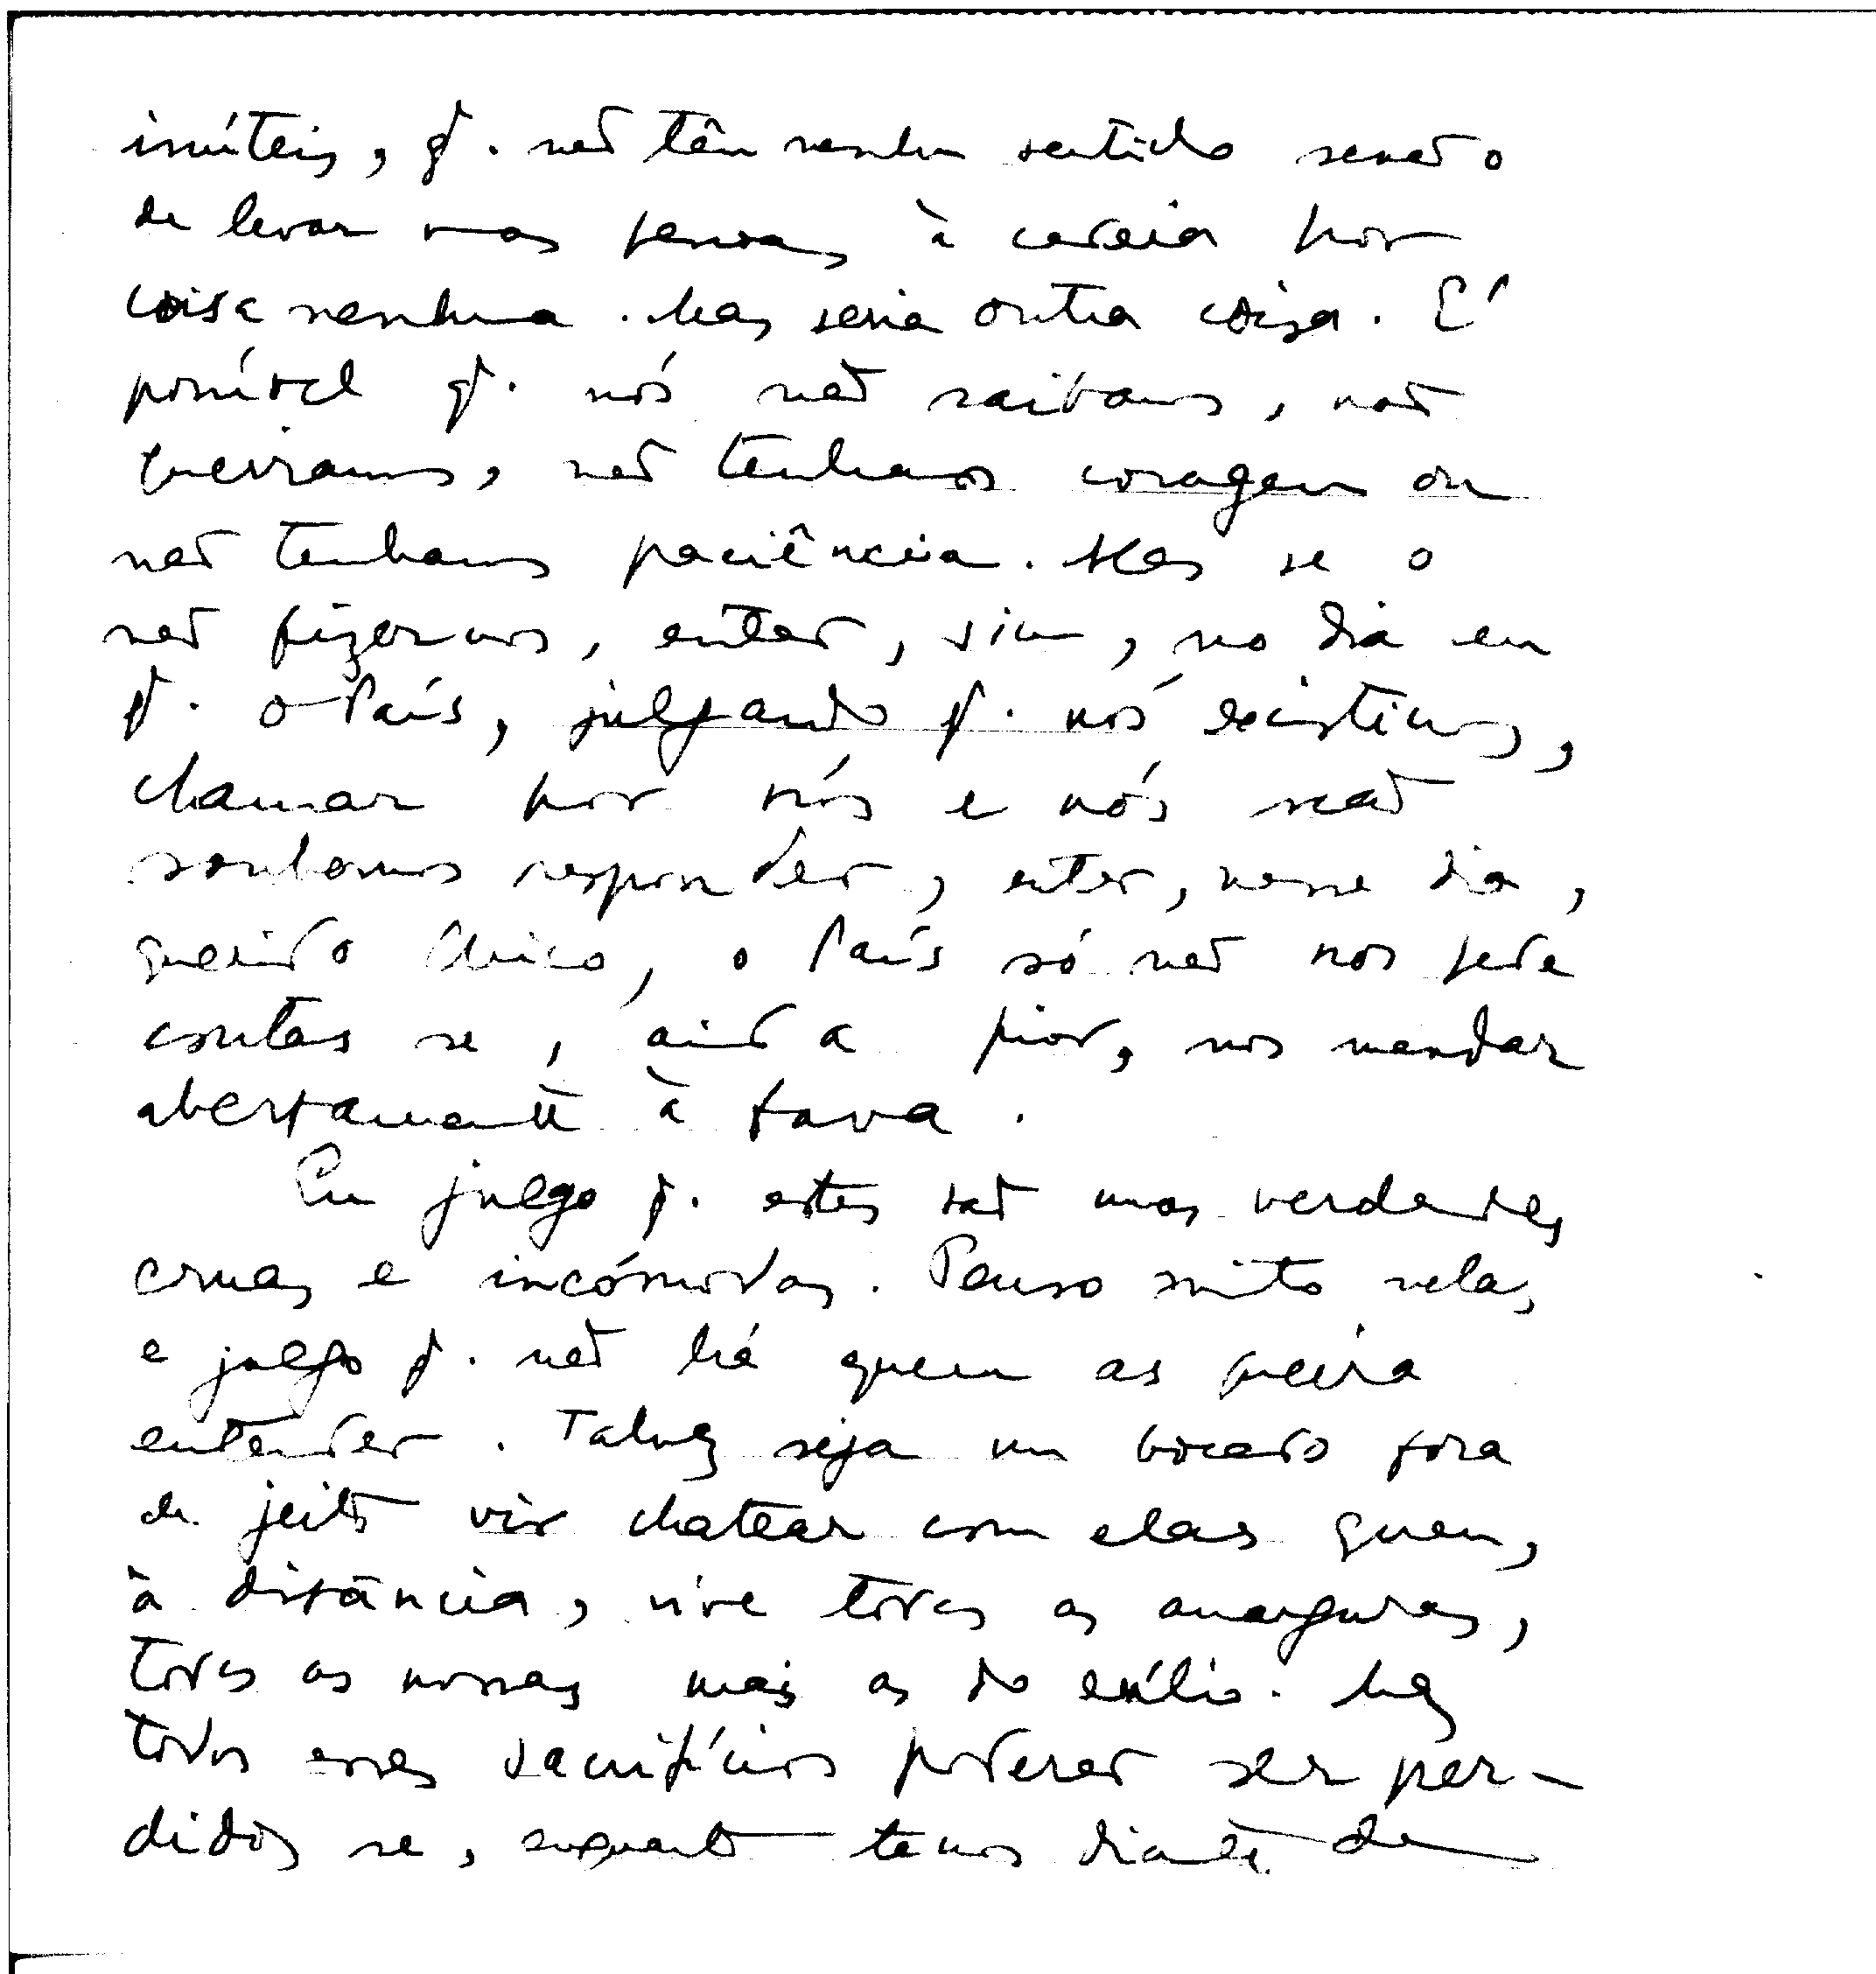 inúteis, q. não têm nenhum sentido senão o
de levar umas pessoas à cadeia por
coisa nenhuma. Mas seria outra coisa. É
possível q. nós não saibamos, não
queiramos, não tenhamos coragem ou
não tenhamos paciência. Mas se o
não fizermos, então, sim, no dia em
q. o País, julgando q. nós existimos,
chamar por nós e nós não
soubermos responder, então, nesse dia,
querido Chico, o País só não nos pede
contas se, ainda pior, nos mandar
abertamente à fava.
Eu julgo q. estas são umas verdades
cruas e incómodas. Penso muito nelas
e julgo q. não há quem as queira
entender. Talvez seja um bocado fora
de jeito vir chatear com elas quem,
à distância, vive todas as amarguras,
todas as nossas mais as do exílio. Mas
todos esses sacrifícios poderão ser per-
didos se, enquanto temos diante de